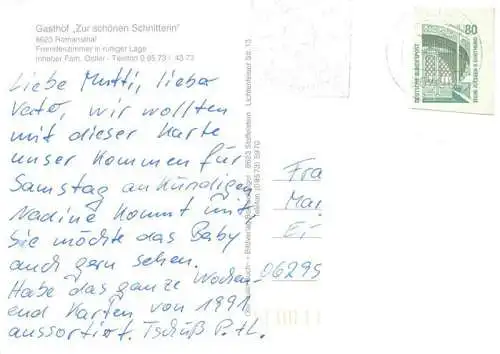 Gasthof „Zur schönen Schnitterin"
8623 Romansthal
Fremdenzimmer in ruhiger Lage
Inhaber Fam. Ostler - Telefon 0 95 73 / 43 73
Liebe Mutti, lieber
Vater, wir wollten
mit dieser Karte
unser Kommen für
Samstag ankündigen
Nadine kommt mit,
Sie möchte das Baby
auch gern sehen.
Habe das ganze Wochen-
end Karten von 1991
aussortiert. Tschüß P.+H.
8623 Staffelstein Lichtenfelser Str. 13
Telefon (09573) 5970
80
DEUTSCHE BUNDESPOST
Fra
Mar
Ei-
06295